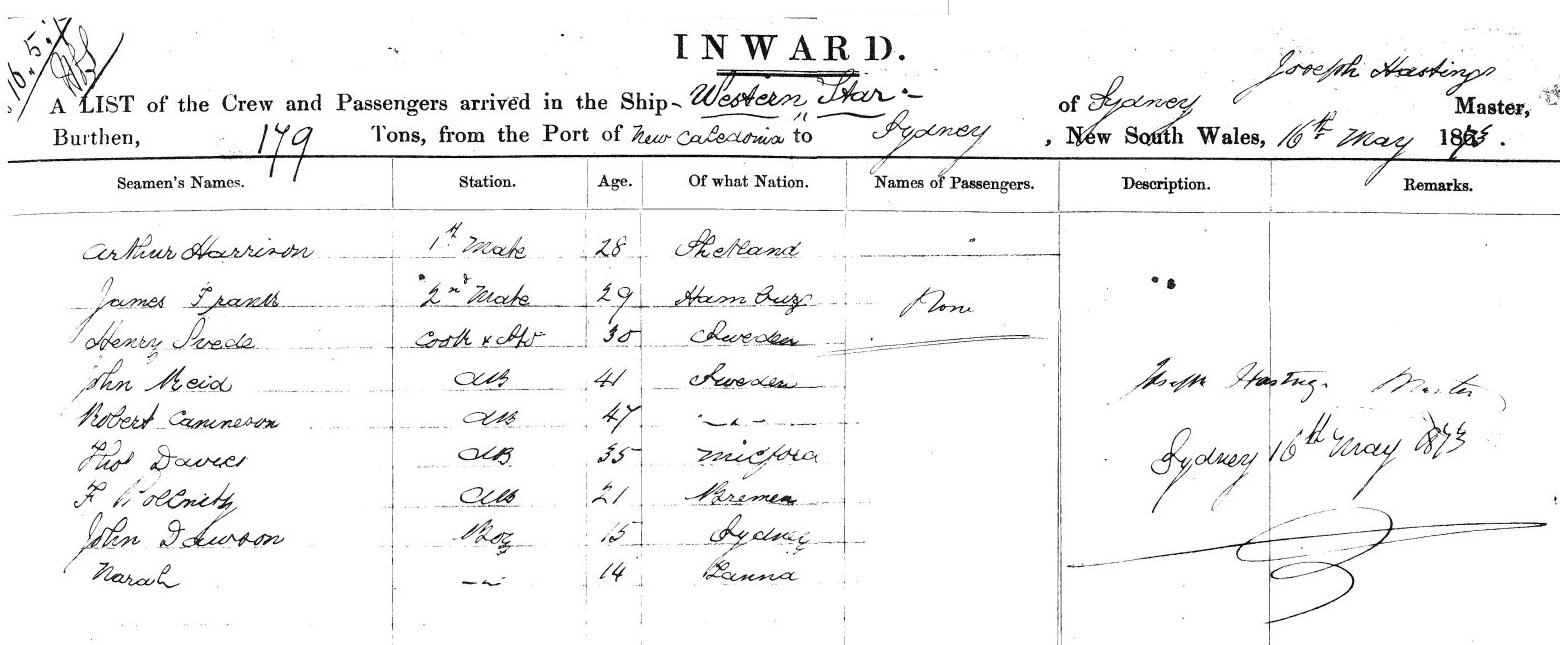 16.5.
INWARD.
Joseph Hastings
A LIST of the Crew and Passengers arrived in the Ship Western Star of Sydney Master,
Burthen, 179 Tons, from the Port of New Caledonia to Sydney, New South Wales, 16th May 1873.
Seamen's Names. Station. Age. Of what Nation. Names of Passengers. Description. Remarks.
Arthur Harrison 1st Mate 28 Shetland
James Frank 2nd Mate 29 Hamburg None
Henry Svede Cook & 30 Sweden
John Reid AB 41 Sweden Joseph Hastings Master
Robert AB 47 -"-
Thos Davies AB 35 Sydney 16th May 1873
F AB 21 Bremen
John Dawson Boy 15 Sydney
Narah -"- 14 Tanna